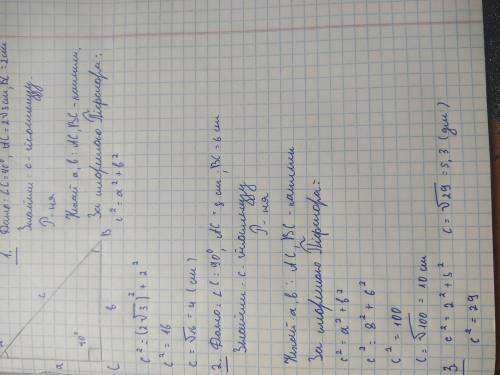 1. Дано: ∠C = 90°, AC = 2√3 cm, BC = 2 cm
Знайти: c - гіпотенузу
Р-ня
Нехай a, b: AC, BC - катети.
За теоремою Піфагора:
c² = a² + b²
B
c
a
b
90°
C
c² = (2√3)² + 2²
c² = 16
c = √16 = 4 (см)
2. Дано: ∠C = 90°, AC = 8 cm; BC = 6 cm
Знайти: c - гіпотенузу
Р-ня
Нехай a, b: AC, BC - катети
За теоремою Піфагора:
c² = a² + b²
c² = 8² + 6²
c² = 100
c = √100 = 10 cm
3. c² = 2² + 5²
c² = 29
c = √29 = 5,3 (дм)